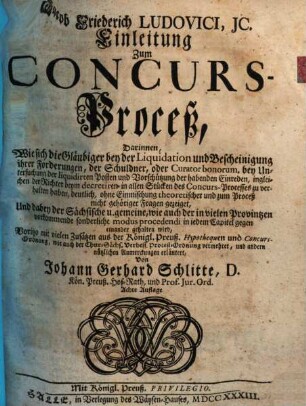 Jacob Friederich LUDOVICI, JC.
Einleitung
Zum
CONCURS-
Proceß,
Darinnen,
Wie sich die Gläubiger bey der Liquidation und Bescheinigung
ihrer Forderungen, der Schuldner, oder Curator bonorum, bey Un-
tersuchung der liquidirten Posten und Vorschützung der habenden Einreden, inglei-
chen der Richter beym decretiren in allen Stücken des Concurs-Processes zu ver-
halten habe, deutlich, ohne Einmischung theoretischer und zum Proceß
nicht gehöriger Fragen gezeiget,
Und dabey der Sächsische u. gemeine, wie auch der in vielen Provintzen
vorkommende sonderliche modus procedendi in jedem Capitel gegen
einander gehalten wird,
Voritzo mit vielen Zusätzen aus der Königl. Preuß. Hypothequen und Concurs-
Ordnung, wie auch der Chur-Sächs. Verbess. Proceß-Ordnung vermehret, und andern
nützlichen Anmerckungen erläutert,
Von
Johann Gerhard Schlitte, D.
Kön. Preuß. Hof-Rath, und Prof. Jur. Ord.
Achte Auflage
Mit Königl. Preuß. PRIVILEGIO.
HALLE, in Verlegung des Wäysen-Hauses, MDCCXXXIII.